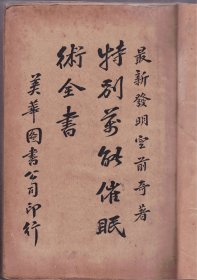 最新發明空前奇著
特別萬能催眠
術全書
美華圖書公司印行